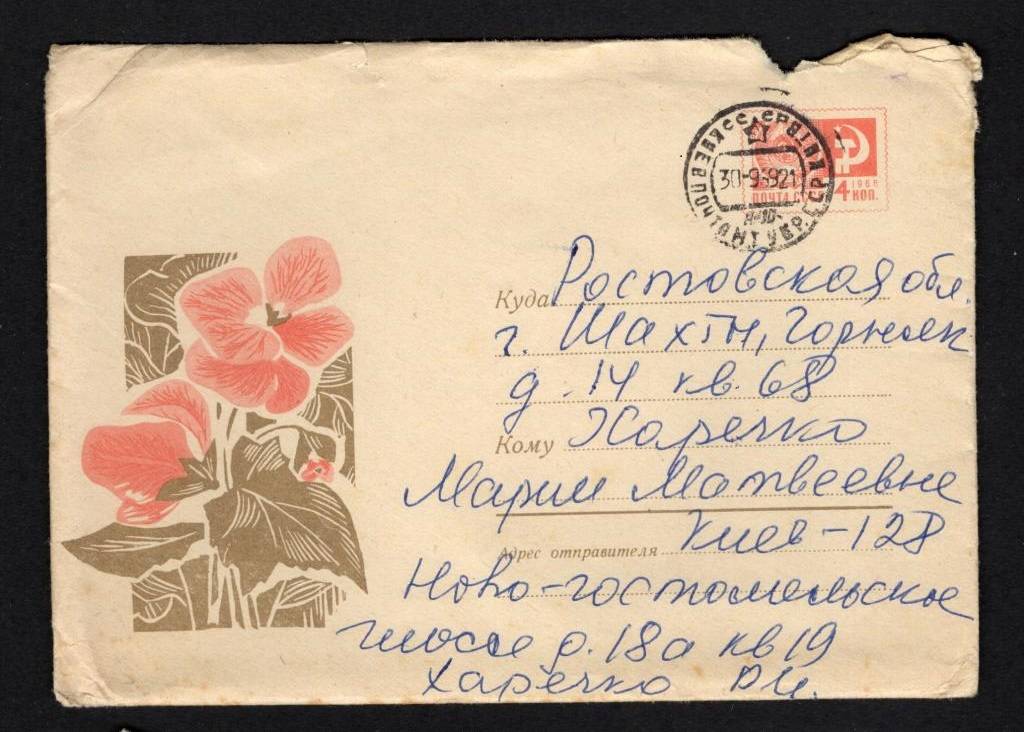 30-9-82 21
1966
ПОЧТА СССР 4 КОП.
Куда Ростовская обл.
г. Шахты, Горняк
д. 14 кв. 68
Кому Харечко
Марии Матвеевне
Адрес отправителя Киев-128
Ново-гостомельское
шоссе д. 18а кв 19
Харечко